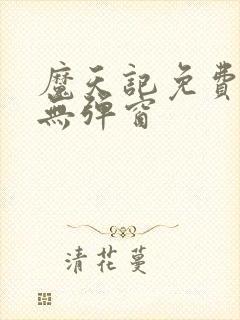 魔天記免費
無彈窗
清花蔓